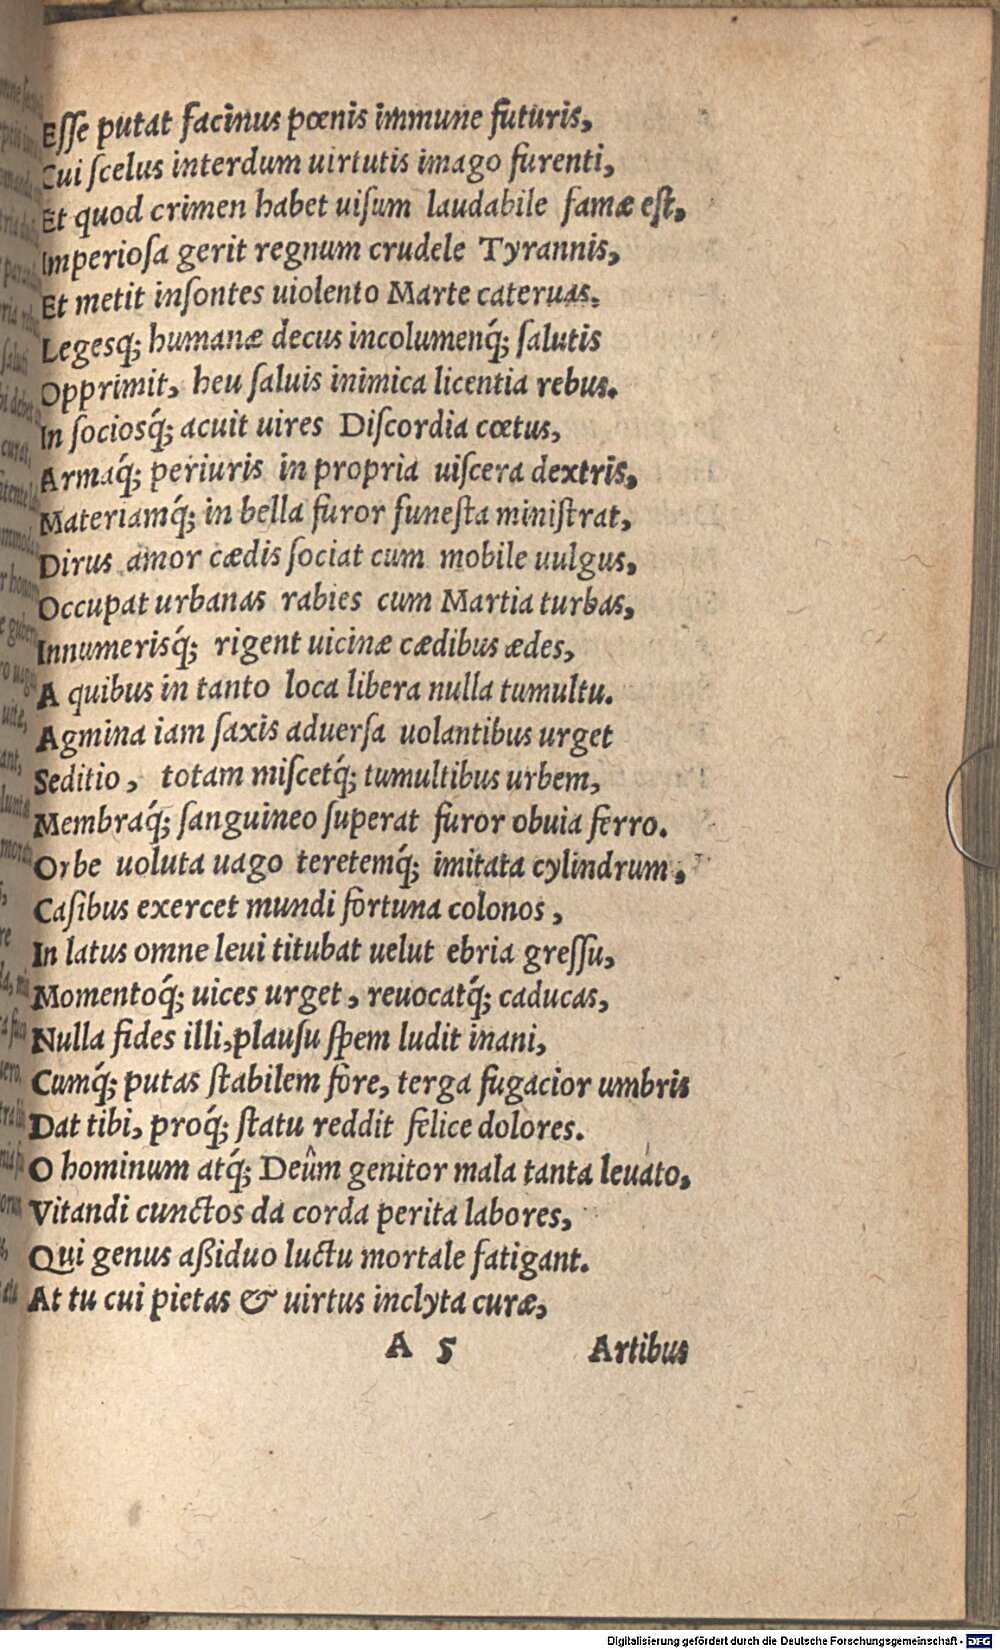 Esse putat facinus pœnis immune futuris,
Cui scelus interdum uirtutis imago furenti,
Et quod crimen habet uisum laudabile famæ est,
Imperiosa gerit regnum crudele Tyrannis,
Et metit insontes uiolento Marte cateruas.
Legesq́; humanæ decus incolumenq́; salutis
Opprimit, heu saluis inimica licentia rebus.
In sociosq́; acuit uires Discordia cœtus,
Armaq́; periuris in propria uiscera dextris,
Materiamq́; in bella furor funesta ministrat,
Dirus amor cædis sociat cum mobile uulgus,
Occupat urbanas rabies cum Martia turbas,
Innumerisq́; rigent uicinæ cædibus ædes,
A quibus in tanto loca libera nulla tumultu.
Agmina iam saxis aduersa uolantibus urget
Seditio, totam miscetq́; tumultibus urbem,
Membraq́; sanguineo superat furor obuia ferro.
Orbe uoluta uago teretemq́; imitata cylindrum,
Casibus exercet mundi fortuna colonos,
In latus omne leui titubat uelut ebria gressu,
Momentoq́; uices urget, reuocatq́; caducas,
Nulla fides illi, plausu spem ludit inani,
Cumq́; putas stabilem fore, terga fugacior umbris
Dat tibi, proq́; statu reddit felice dolores.
O hominum atq́; Deûm genitor mala tanta leuato,
Vitandi cunctos da corda perita labores,
Qui genus aßiduo luctu mortale fatigant.
At tu cui pietas & uirtus inclyta curæ,
A 5 Artibus
Digitalisierung gefördert durch die Deutsche Forschungsgemeinschaft - DFG